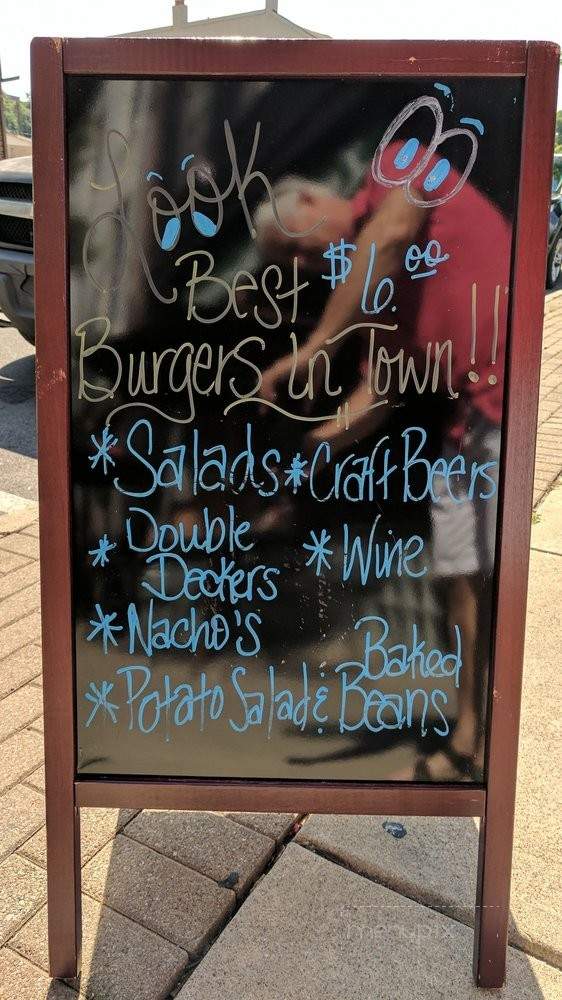 Look
Best $6.00
Burgers In Town!!
*Salads *Craft Beers
*Double Deckers *Wine
*Nacho's
*Potato Salad & Baked Beans
menupix